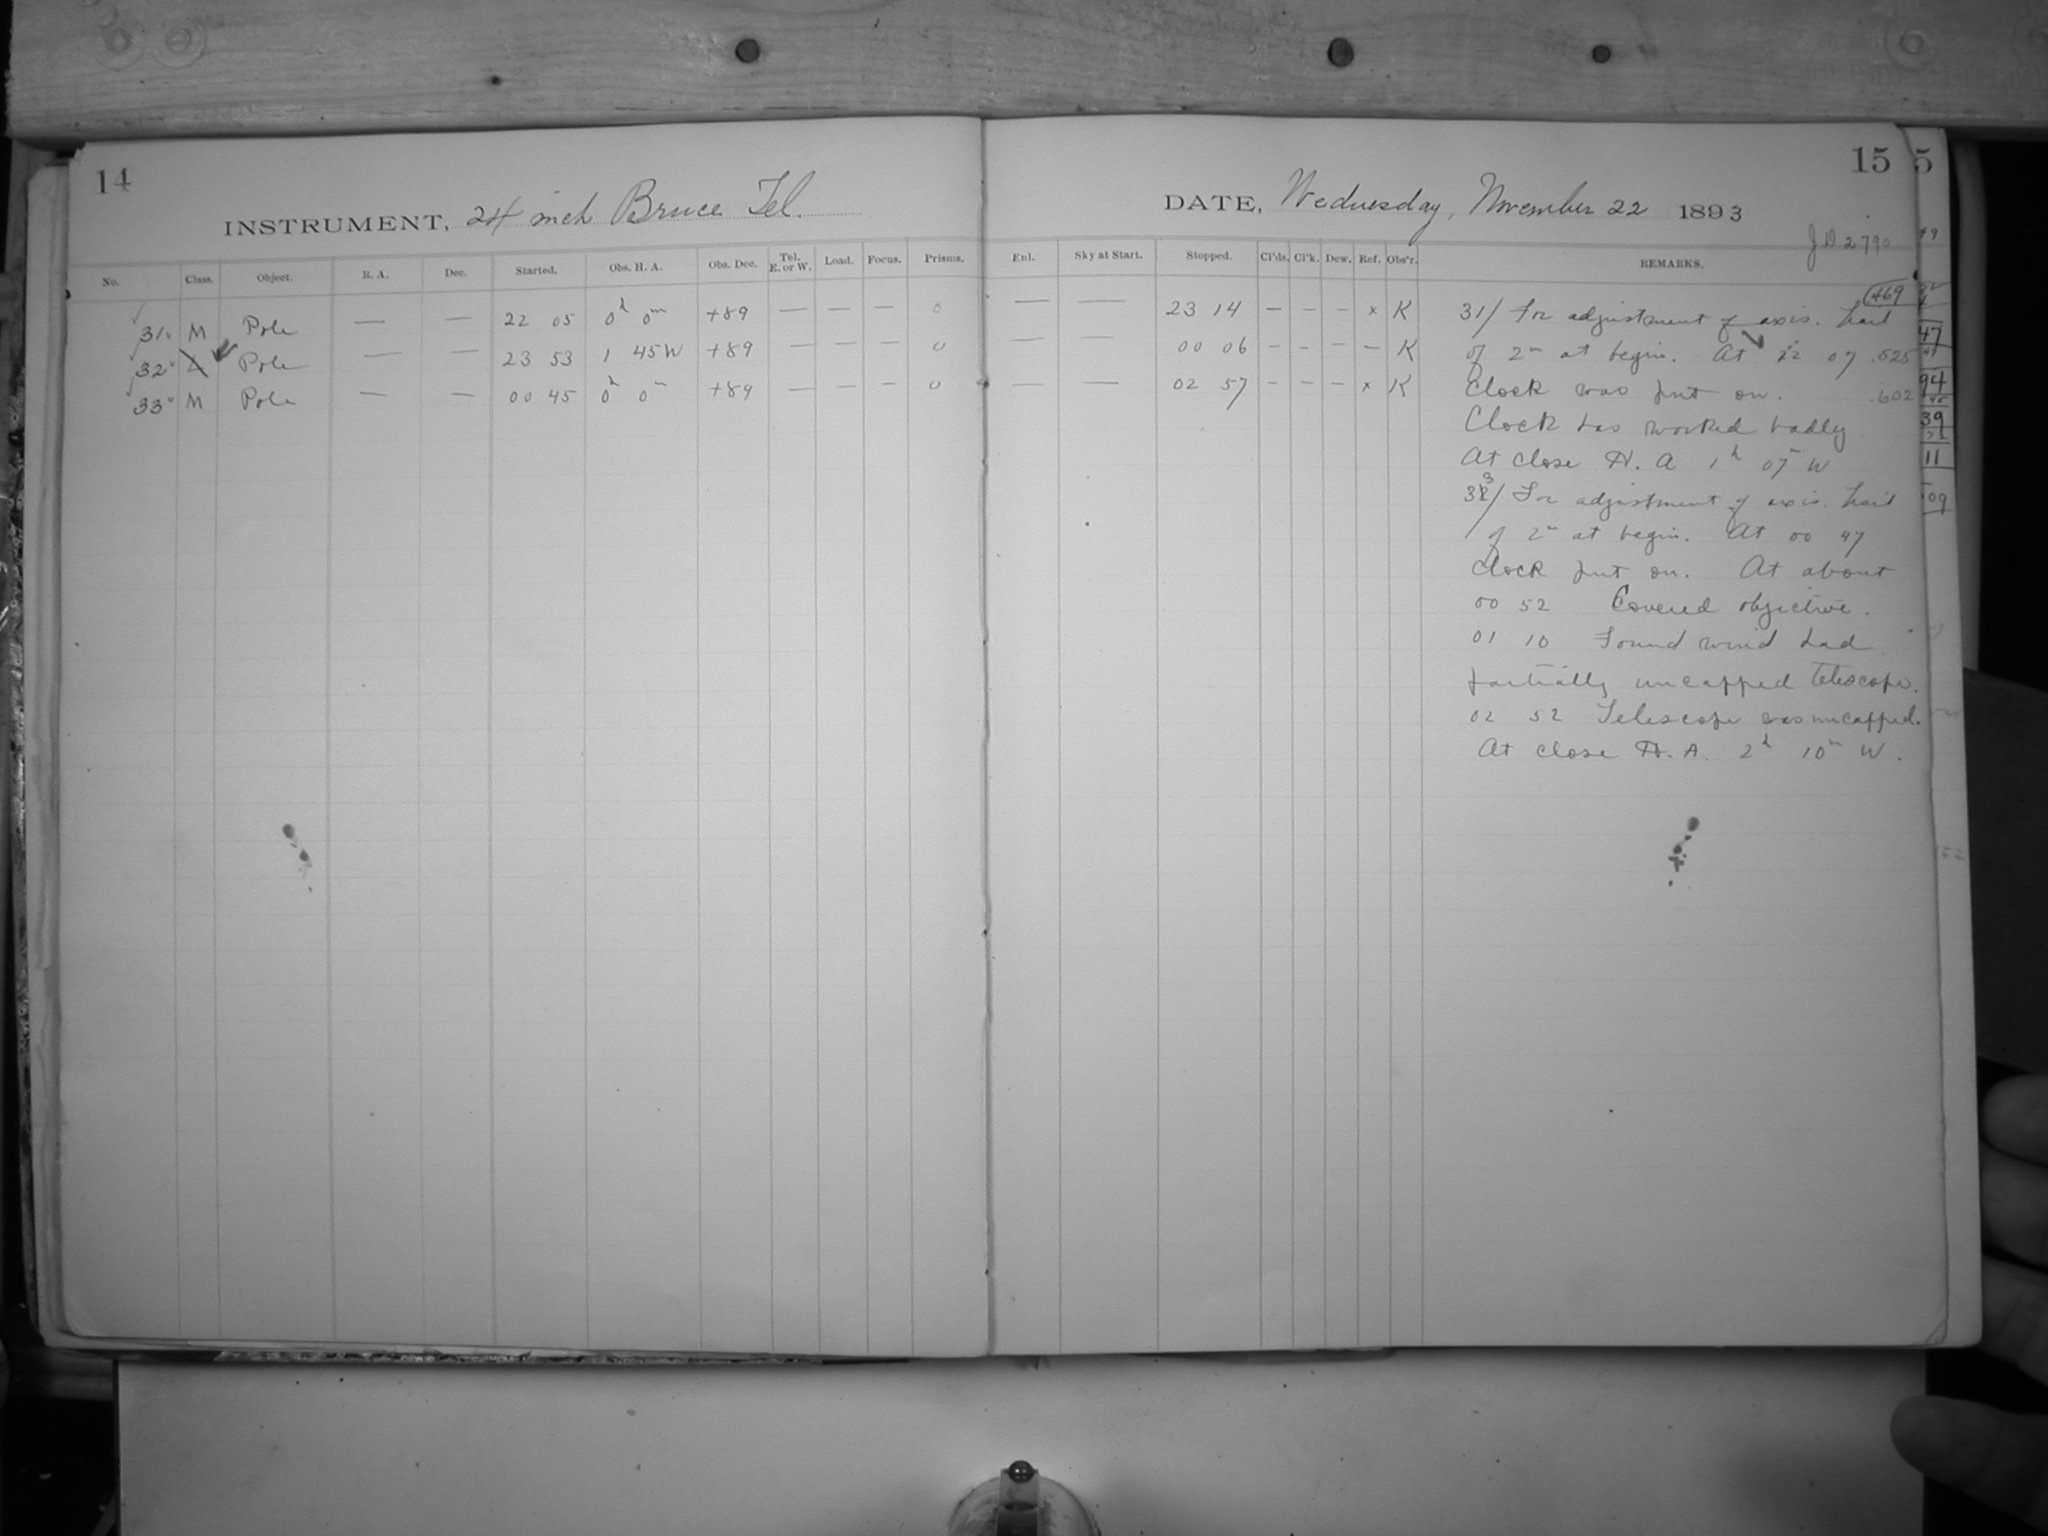 14
INSTRUMENT, 24 inch Bruce Tel.
No. Class. Object. R. A. Dec. Started. Obs. H. A. Obs. Dec. Tel. E. or W. Load. Focus. Prisms.
31 M Pole — — 22 05 0h 0m +89 — — — 0
32 Pole — — 23 53 1 45 W +89 — — — 0
33 M Pole — — 00 45 0h 0m +89 — — — 0
15 5
DATE, Wednesday, November 22 1893
J.D. 2790
Enl. Sky at Start. Stopped. Cl'ds. Cl'k. Dew. Ref. Obs'r. REMARKS.
— — 23 14 — — — x K
— — 00 06 — — — — K
— — 02 57 — — — x K
469
31/ For adjustment of axis. trail
of 2m at begin. At 22 07 .525
Clock was put on. .602
Clock has worked badly
At close H. A 1h 07m W
33/ For adjustment of axis. trail
of 2m at begin. At 00 47
Clock put on. At about
00 52 Covered objective.
01 10 Found wind had
partially uncapped telescope.
02 52 Telescope was uncapped.
At close H. A. 2h 10m W.
47
94
39
11
09